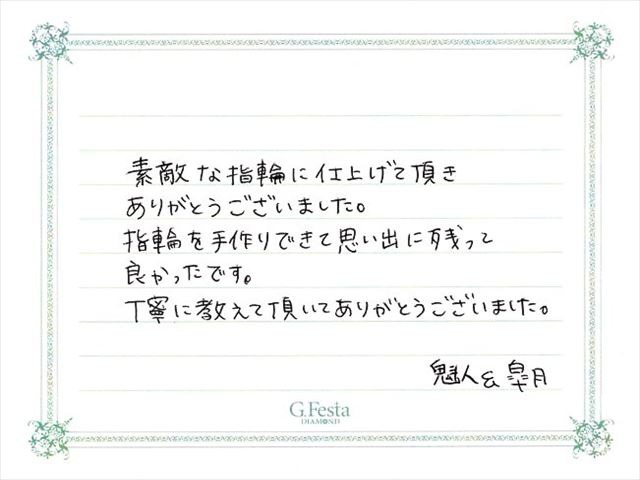 素敵な指輪に仕上げて頂き
ありがとうございました。
指輪を手作りできて思い出に残って
良かったです。
丁寧に教えて頂いてありがとうございました。
魁人&皐月
G.Festa
DIAMOND